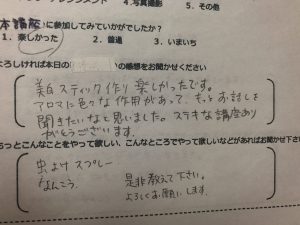 4.写真撮影 5.その他
本講座に参加してみていかがでしたか?
1.楽しかった 2.普通 3.いまいち
よろしければ本日の の感想をお聞かせください
スティック作り 楽しかったです。
アロマに色々な作用があって、もっとお話しを
聞きたいなと思いました。ステキな講座あり
がとうございます。
もっとこんなことをやって欲しい、こんなところでやって欲しいなどがあればお聞かせ下さい
虫よけスプレー
なんこう. 是非教えて下さい。
よろしくお願いします.